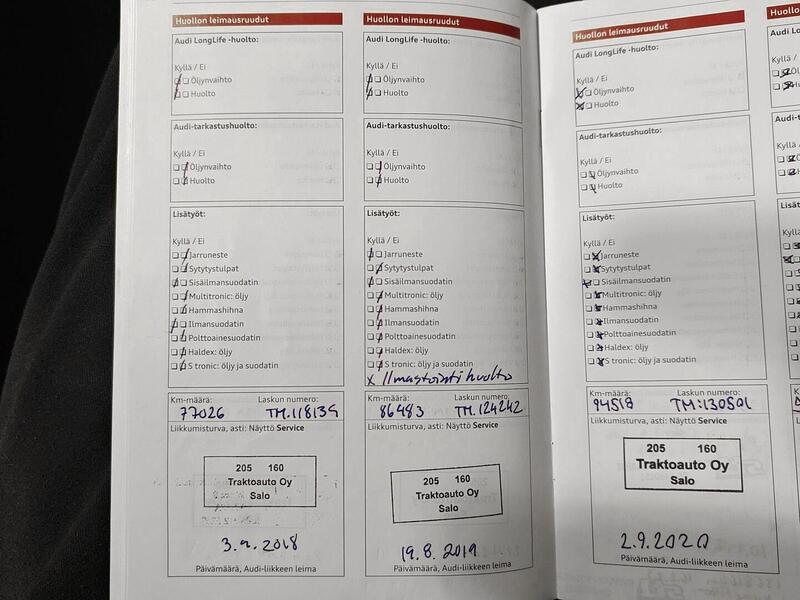 Huollon leimausruudut
Audi LongLife -huolto:
Kyllä / Ei
Öljynvaihto
Huolto
Audi-tarkastushuolto:
Kyllä / Ei
Öljynvaihto
Huolto
Lisätyöt:
Kyllä / Ei
Jarruneste
Sytytystulpat
Sisäilmansuodatin
Multitronic: öljy
Hammashihna
Ilmansuodatin
Polttoainesuodatin
Haldex: öljy
S tronic: öljy ja suodatin
Km-määrä: Laskun numero:
77026 TM.118139
Liikkumisturva, asti: Näyttö Service
205 160
Traktoauto Oy
Salo
3.9.2018
Päivämäärä, Audi-liikkeen leima
Huollon leimausruudut
Audi LongLife -huolto:
Kyllä / Ei
Öljynvaihto
Huolto
Audi-tarkastushuolto:
Kyllä / Ei
Öljynvaihto
Huolto
Lisätyöt:
Kyllä / Ei
Jarruneste
Sytytystulpat
Sisäilmansuodatin
Multitronic: öljy
Hammashihna
Ilmansuodatin
Polttoainesuodatin
Haldex: öljy
S tronic: öljy ja suodatin
x Ilmastointi huolto
Km-määrä: Laskun numero:
86483 TM.124242
Liikkumisturva, asti: Näyttö Service
205 160
Traktoauto Oy
Salo
19.8.2019
Päivämäärä, Audi-liikkeen leima
Huollon leimausruudut
Audi LongLife -huolto:
Kyllä / Ei
Öljynvaihto
Huolto
Audi-tarkastushuolto:
Kyllä / Ei
Öljynvaihto
Huolto
Lisätyöt:
Kyllä / Ei
Jarruneste
Sytytystulpat
Sisäilmansuodatin
Multitronic: öljy
Hammashihna
Ilmansuodatin
Polttoainesuodatin
Haldex: öljy
S tronic: öljy ja suodatin
Km-määrä: Laskun numero:
94518 TM:130501
Liikkumisturva, asti: Näyttö Service
205 160
Traktoauto Oy
Salo
2.9.2020
Päivämäärä, Audi-liikkeen leima
Kyllä